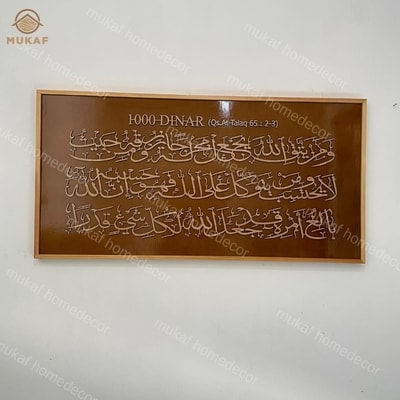 MUKAF
HOMEDECOR
1000 DINAR (Qs.At-Talaq 65 : 2-3)
ومن يتق الله يجعل له مخرجا ويرزقه من حيث
لا يحتسب ومن يتوكل على الله فهو حسبه إن الله
بالغ أمره قد جعل الله لكل شيء قدرا
mukaf homedecor